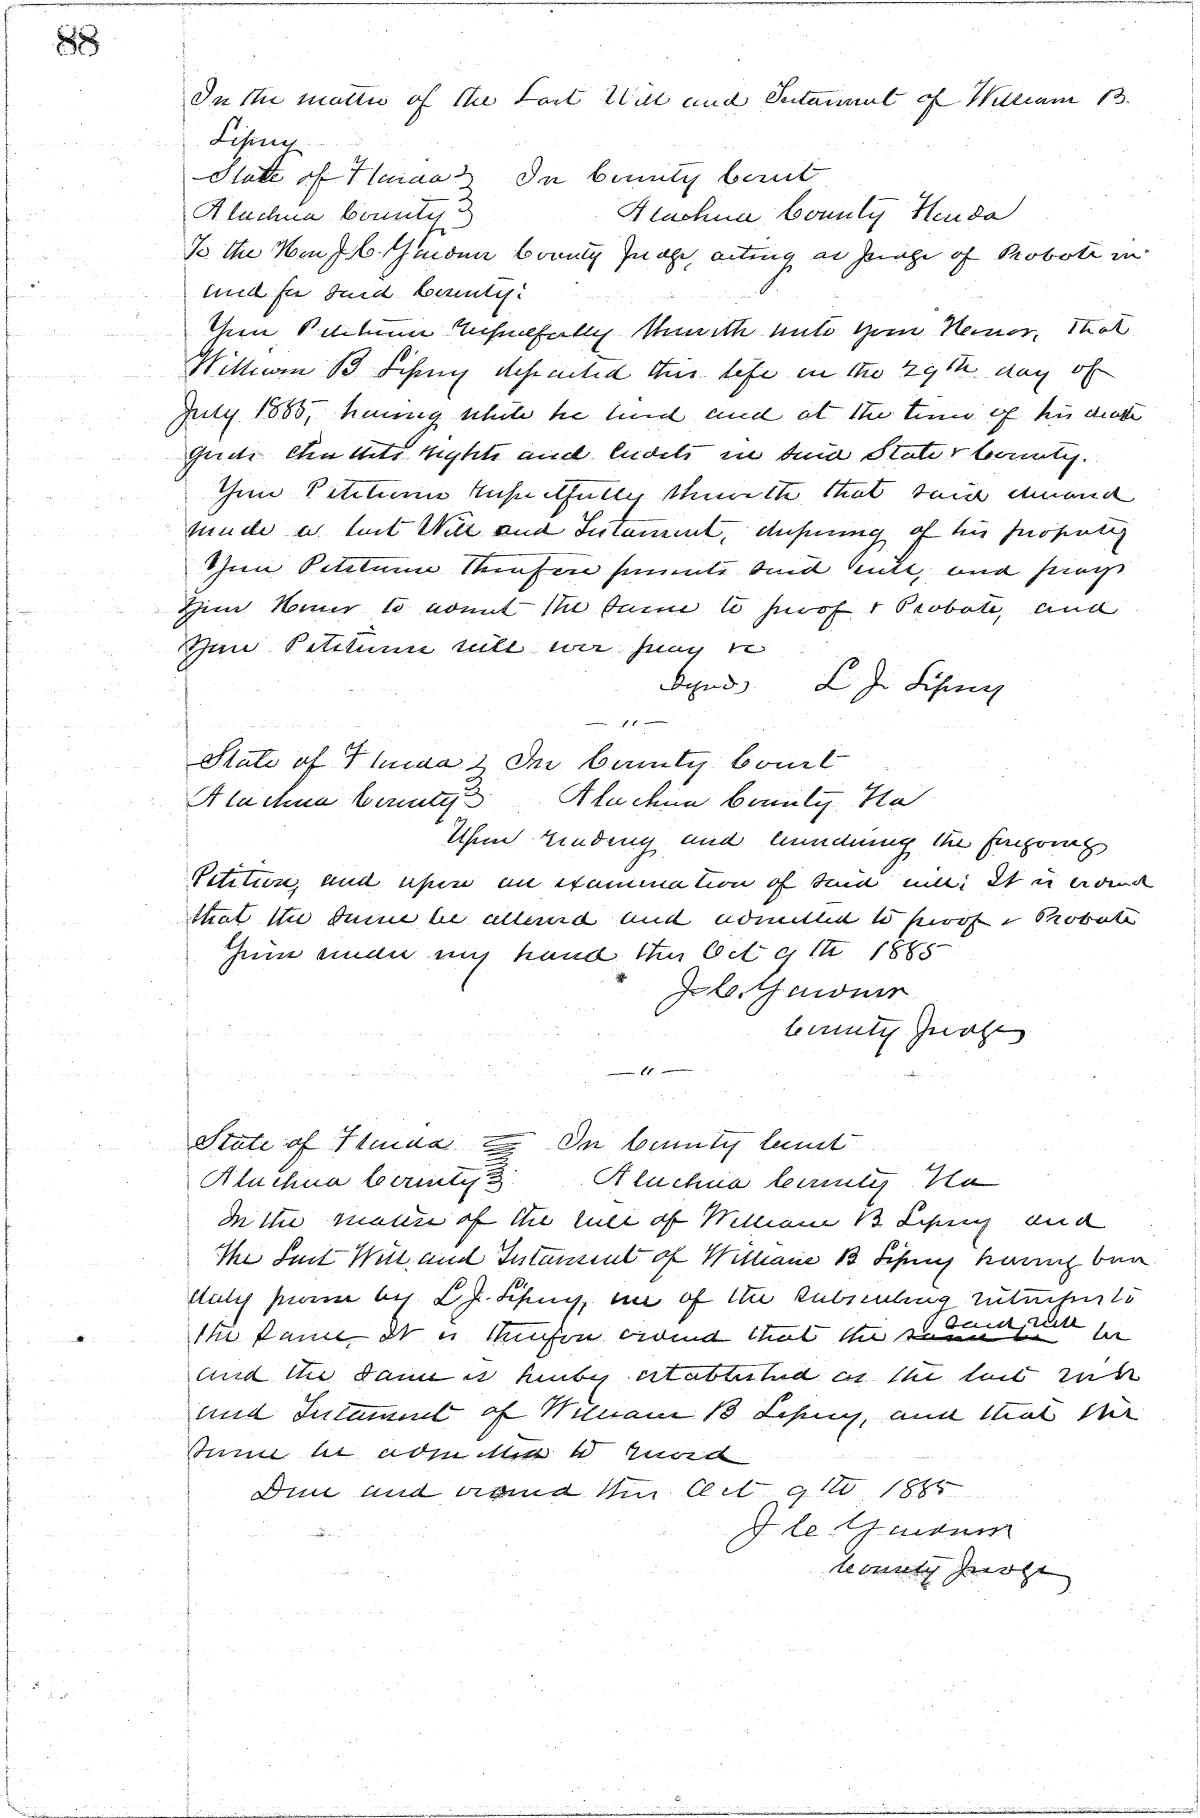 88
In the matter of the Last Will and Testament of William B.
State of Florida } In County Court
Alachua County } Alachua County Florida
To the Hon J. C. Gardner County Judge, acting as Judge of Probate in
and for said County:
Your Petitioner respectfully showeth unto your Honor, that
William B departed this life on the 29th day of
July 1885, having while he lived and at the time of his death
goods chattels rights and credits in said State & County.
Your Petitioner respectfully showeth that said deceased
made a last Will and Testament, disposing of his property
Your Petitioner therefore presents said will, and prays
Your Honor to admit the same to proof & Probate, and
Your Petitioner will ever pray &c
Signed) L J
— " —
State of Florida } In County Court
Alachua County } Alachua County Fla
Upon reading and considering the foregoing
Petition, and upon an examination of said will; It is ordered
that the same be allowed and admitted to proof & Probate
Given under my hand this Oct 9th 1885
J. C. Gardner
County Judge
— " —
State of Florida } In County Court
Alachua County } Alachua County Fla
In the matter of the will of William B and
The Last Will and Testament of William B having been
duly proven by L J. one of the subscribing witnesses to
the same, It is therefore ordered that the said will be
and the same is hereby established as the last will
and Testament of William B and that the
same be admitted to record
Done and ordered this Oct 9th 1885
J C Gardner
County Judge